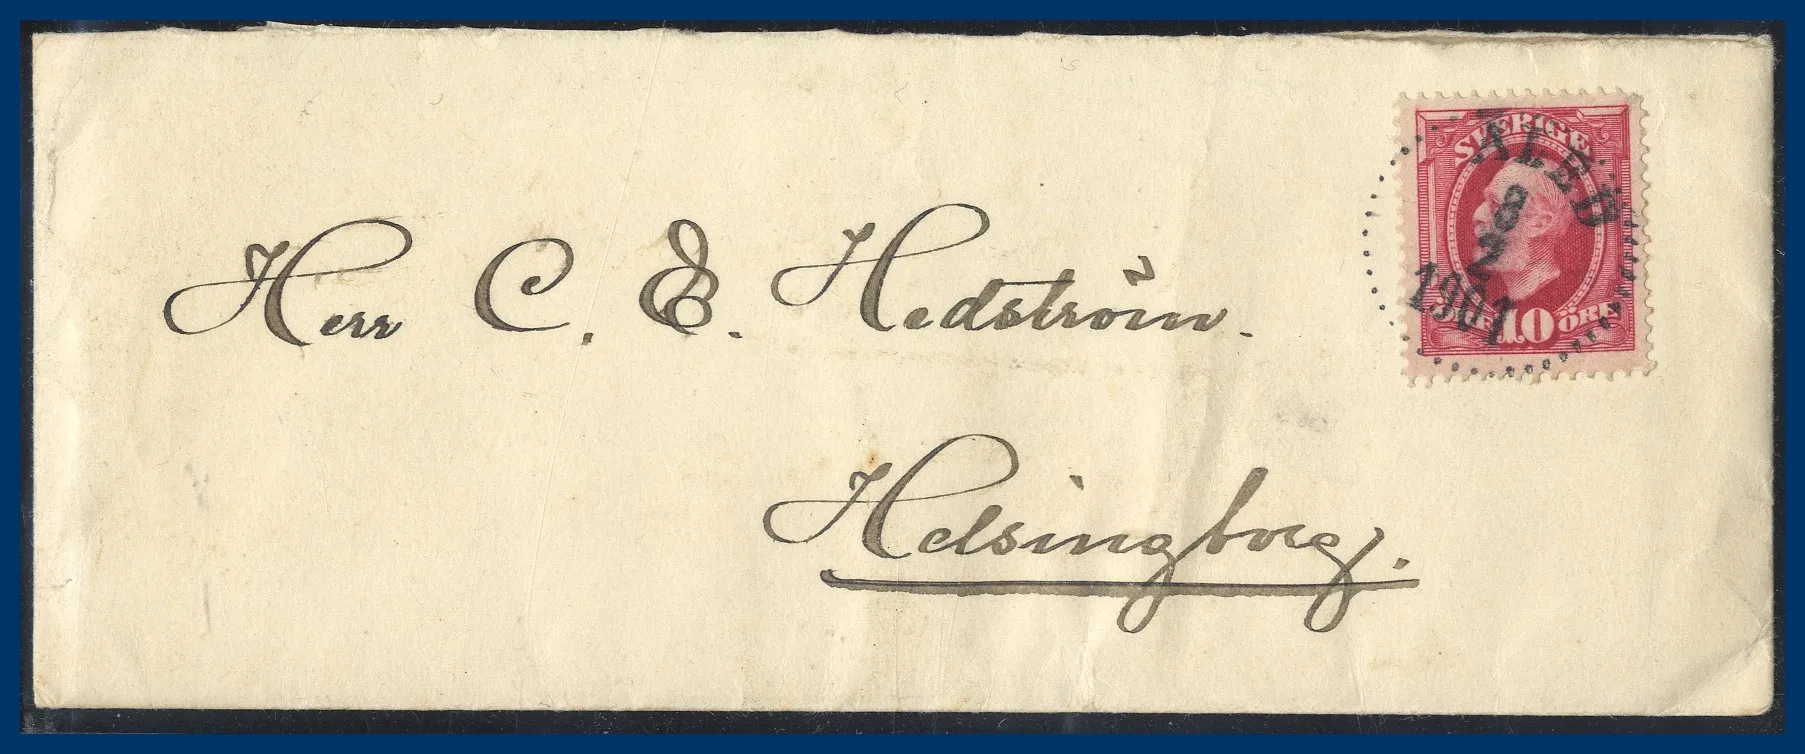 SVERIGE
ÅLED
8
2
1901
10 ÖRE
Herr C. E. Hedström.
Helsingborg.